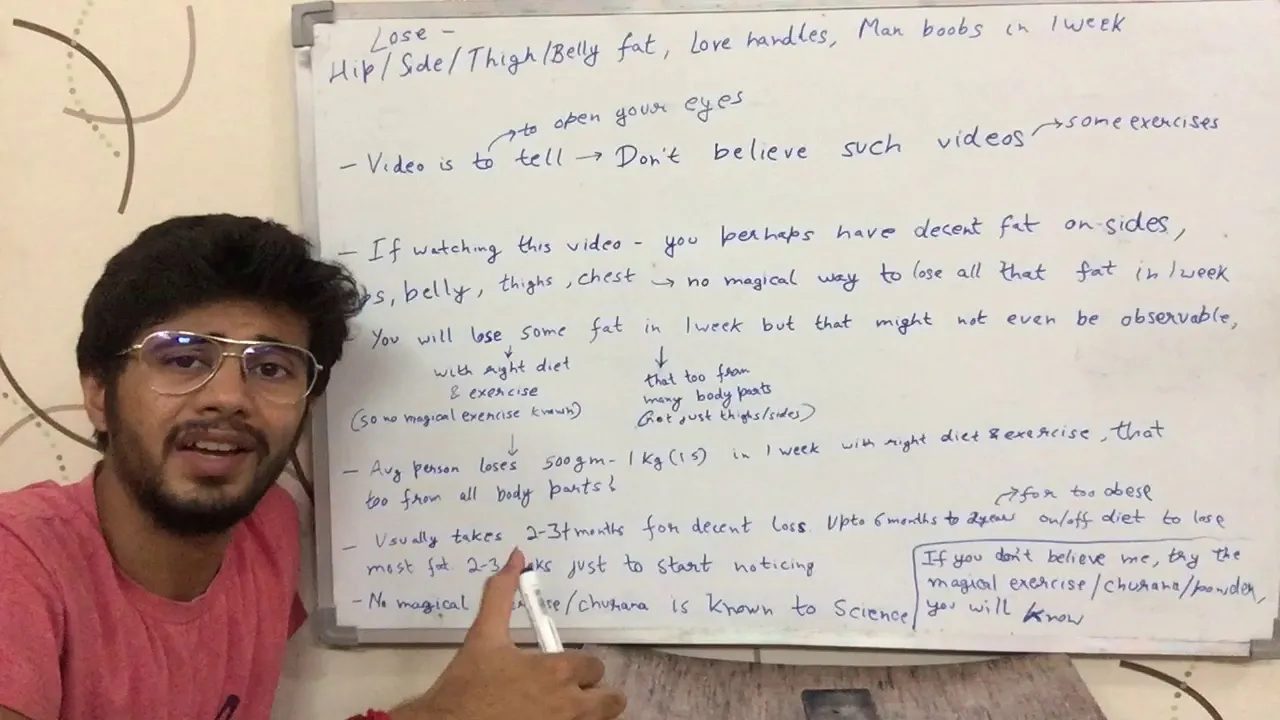 Lose -
Hip/Side/Thigh/Belly fat, Love handles, Man boobs in 1 week
to open your eyes
some exercises
- Video is to tell → Don't believe such videos
- If watching this video - you perhaps have decent fat on sides,
belly, thighs, chest → no magical way to lose all that fat in 1 week
You will lose some fat in 1 week but that might not even be observable,
with right diet
& exercise
(so no magical exercise known)
that too from
many body parts
(not just thighs/sides)
- Avg person loses 500gm-1kg (1 S) in 1 week with right diet & exercise, that
too from all body parts!
for too obese
- Usually takes 2-3+ months for decent loss. Upto 6 months to 2 year on/off diet to lose
most fat. 2-3 just to start noticing
- No magical /churana is known to Science
If you don't believe me, try the
magical exercise/churana/powder,
you will know